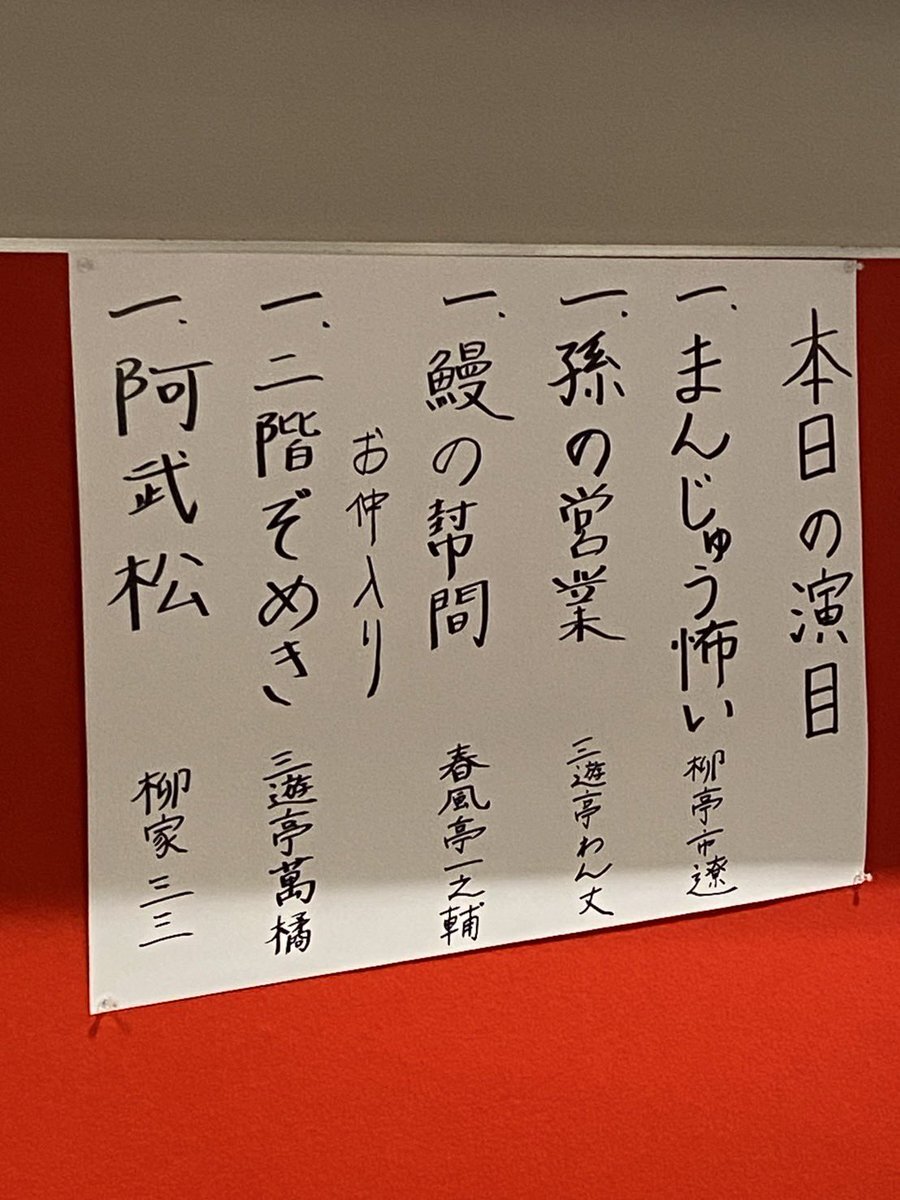 本日の演目
一、まんじゅう怖い 柳亭市遼
一、孫の営業 三遊亭わん丈
一、鰻の幇間 春風亭一之輔
お仲入り
一、二階ぞめき 三遊亭萬橘
一、阿武松 柳家三三